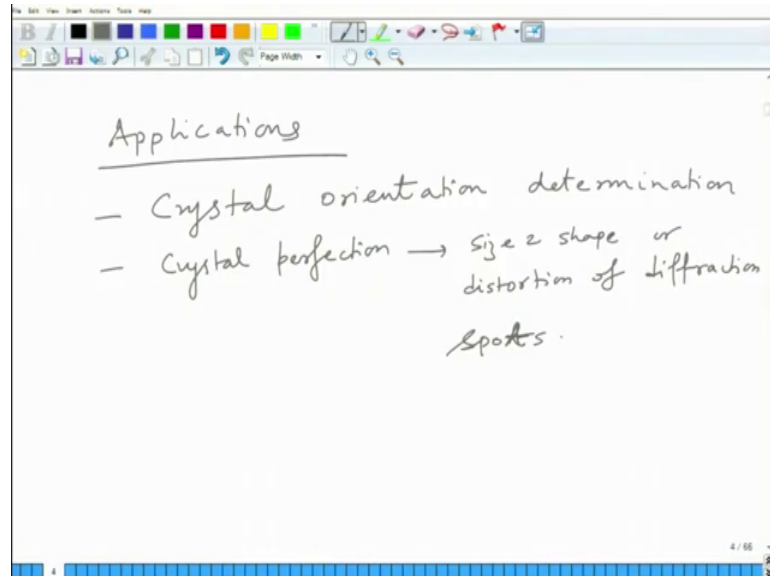 File Edit View Insert Actions Tools Help
B I
Page Width
Applications
— Crystal orientation determination
— Crystal perfection → size & shape or
distortion of diffraction
spots.
4 / 66
4